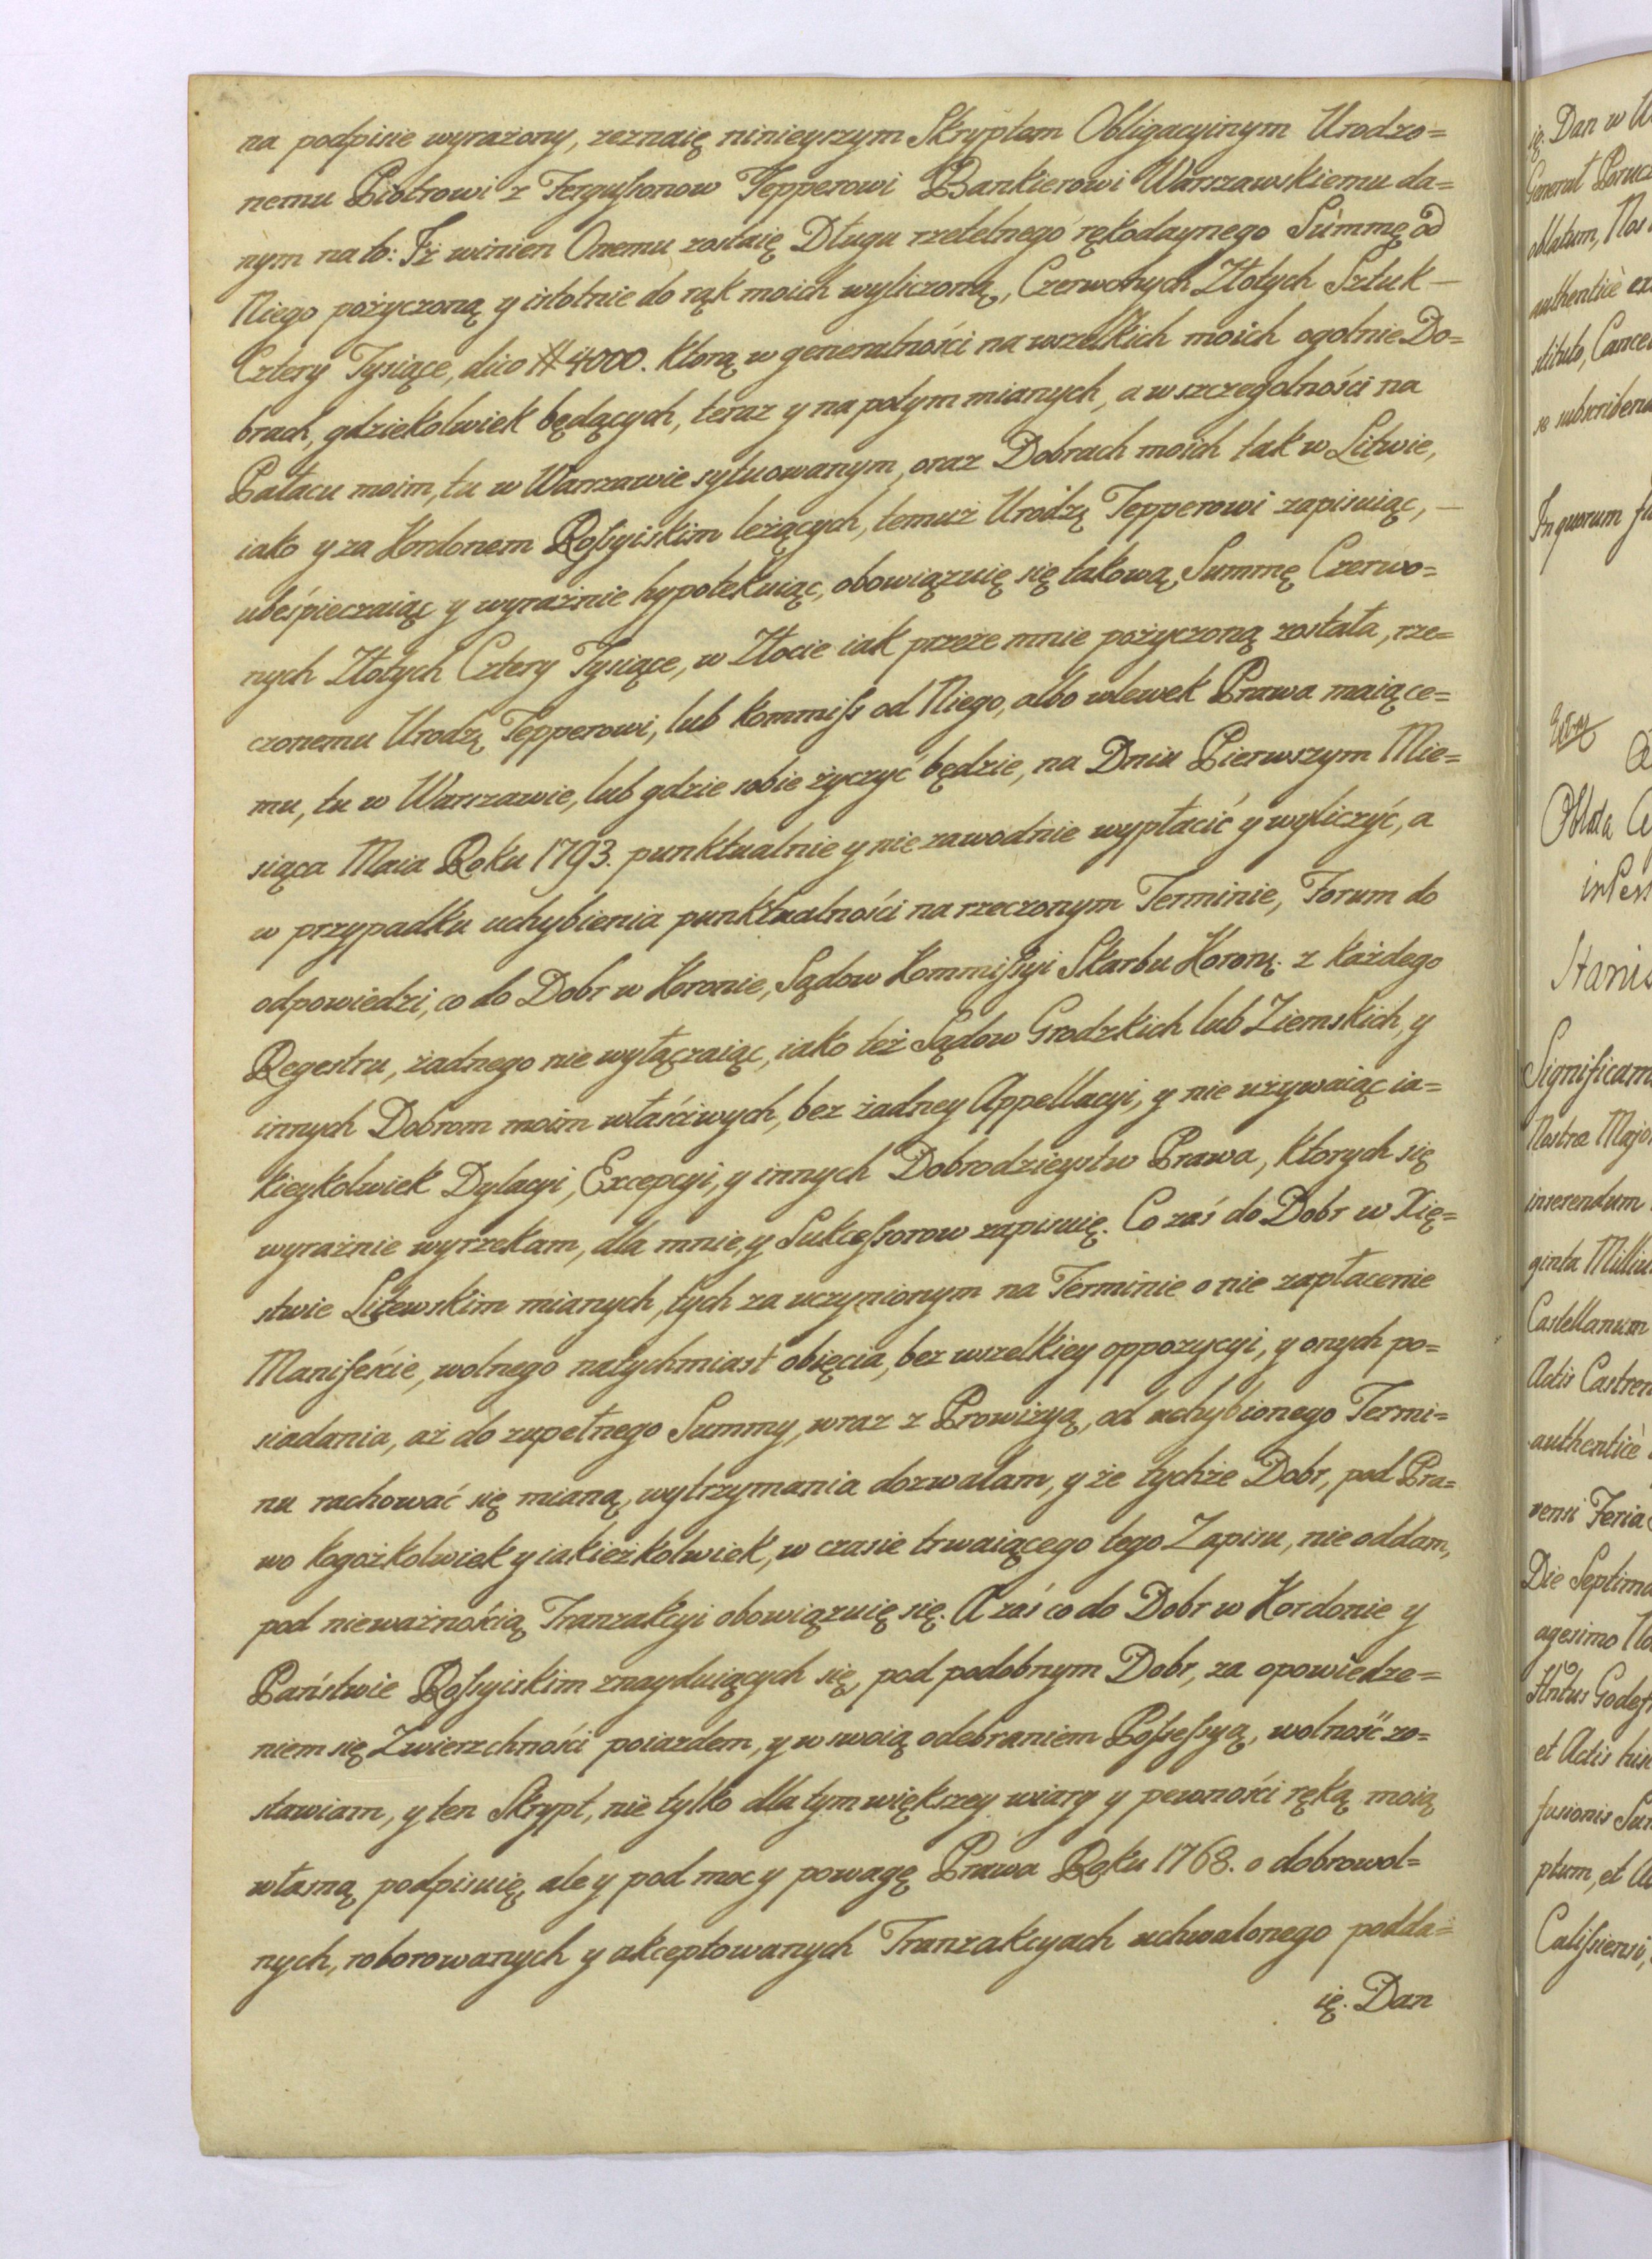 na podpisie wyrażony, zeznaię ninieyszym Skryptem Obligacyinym Urodzo=
nemu Piotrowi z Fergussonow Tepperowi Bankierowi Warszawskiemu da=
nym na to: Iż winien Onemu zostaię Długu rzetelnego rękodaynego Summę od
Niego pożyczoną y istotnie do rąk moich wyliczoną, Czerwonych Złotych Sztuk —
Cztery Tysiące, dico # 4000. ktorą w generalności na wszelkich moich ogolnie Do=
brach, gdziekolwiek będących, teraz y na potym mianych, a w szczegolności na
Pałacu moim, tu w Warszawie sytuowanym, oraz Dobrach moich tak w Litwie,
iako y za Kordonem Rossyiskim leżących, temuż Urodzą Tepperowi zapisuiąc, —
ubeśpieczaiąc y wyraźnie hypotekuiąc, obowiązuię się takową Summę Czerwo=
nych Złotych Cztery Tysiące, w Złocie iak przeze mnie pożyczoną została, rze=
czonemu Urodzą Tepperowi, lub kommiss od Niego, albo wlewek Prawa maiące=
mu, tu w Warszawie, lub gdzie sobie życzyć będzie, na Dniu Pierwszym Mie=
siąca Maia Roku 1793. punktualnie y nie zawodnie wypłacić y wyliczyć, a
w przypadku uchybienia punktualności na rzeczonym Terminie, Forum do
odpowiedzi, co do Dobr w Koronie, Sądow Kommissyi Skarbu Koronņ. z każdego
Regestru, żadnego nie wyłączaiąc, iako też Sądow Grodzkich lub Ziemskich, y
innych Dobrom moim właściwych, bez żadney Appellacyi, y nie używaiąc ia=
kieykolwiek Dylacyi, Excepcyi, y innych Dobrodzieystw Prawa, ktorych się
wyraźnie wyrzekam, dla mnie, y Sukcessorow zapisuię. Co zaś do Dobr w Xię=
stwie Litewskim mianych, tych za uczynionym na Terminie o nie zapłacenie
Manifeście, wolnego natychmiast obięcia, bez wszelkiey oppozycyi, y onych po=
siadania, aż do zupełnego Summy, wraz z Prowizyą, od uchybionego Termi=
nu rachować się mianą, wytrzymania dozwalam, y że tychże Dobr, pod Pra=
wo kogożkolwiek y iakieżkolwiek, w czasie trwaiącego tego Zapisu, nie oddam,
pod nieważnością Tranzakcyi obowiązuię się. A zaś co do Dobr w Kordonie y
Państwie Rossyiskim znayduiących się, pod podobnym Dobr, za opowiedze=
niem się Zwierzchności poiazdem, y w swoią odebraniem Possessyą, wolność zo=
stawiam, y ten Skrypt, nie tylko dla tym większey wiary y pewności ręką moią
własną podpisuię, ale y pod moc y powagę Prawa Roku 1768. o dobrowol=
nych, roborowanych y akceptowanych Tranzakcyach uchwalonego podda=
ię. Dan
ię. Dan w
Generał Porucz
oblatum, Nos
authenticè ex
stituto, Cancel
se subscribend
In quorum
Oblata
Stanis
Significam
Nostra Major
inserendum
ginta Milliu
Castellanum
Actis Castren
authenticè
vensi Feria
Die Septima
agesimo
et Actis
fusionis Sum
ptum, et
Calissiensi,